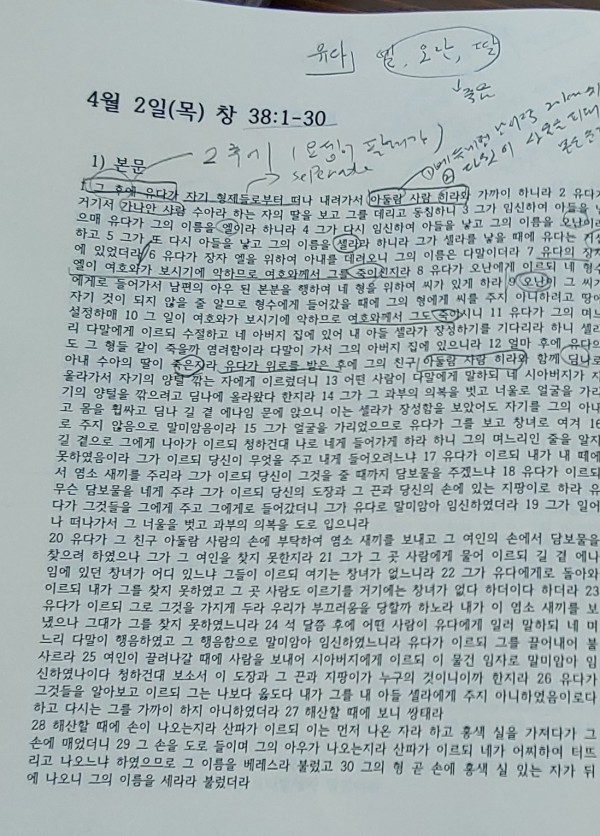 유다 엘, 오난, 딸
죽은
4월 2일(목) 창 38:1-30
1) 본문
2 후시 (요셉이 팔려가)
seperade
1 그 후에 유다가 자기 형제들로부터 떠나 내려가서 아둘람 사람 히라와 가까이 하니라 2 유다가
거기서 가나안 사람 수아라 하는 자의 딸을 보고 그를 데리고 동침하니 3 그가 임신하여 아들을 낳
으매 유다가 그의 이름을 엘이라 하니라 4 그가 다시 임신하여 아들을 낳고 그의 이름을 오난이라
하고 5 그가 또 다시 아들을 낳고 그의 이름을 셀라라 하니라 그가 셀라를 낳을 때에 유다는 거십
에 있었더라 6 유다가 장자 엘을 위하여 아내를 데려오니 그의 이름은 다말이더라 7 유다의 장자
엘이 여호와가 보시기에 악하므로 여호와께서 그를 죽이신지라 8 유다가 오난에게 이르되 네 형수
에게로 들어가서 남편의 아우 된 본분을 행하여 네 형을 위하여 씨가 있게 하라 9 오난이 그 씨가
자기 것이 되지 않을 줄 알므로 형수에게 들어갔을 때에 그의 형에게 씨를 주지 아니하려고 땅에
설정하매 10 그 일이 여호와가 보시기에 악하므로 여호와께서 그도 죽이시니 11 유다가 그의 며느
리 다말에게 이르되 수절하고 네 아버지 집에 있어 내 아들 셀라가 장성하기를 기다리라 하니 셀라
도 그 형들 같이 죽을까 염려함이라 다말이 가서 그의 아버지 집에 있으니라 12 얼마 후에 유다의
아내 수아의 딸이 죽은지라 유다가 위로를 받은 후에 그의 친구 아둘람 사람 히라와 함께 딤나로
올라가서 자기의 양털 깎는 자에게 이르렀더니 13 어떤 사람이 다말에게 말하되 네 시아버지가 자
기의 양털을 깎으려고 딤나에 올라왔다 한지라 14 그가 그 과부의 의복을 벗고 너울로 얼굴을 가리
고 몸을 휩싸고 딤나 길 곁 에나임 문에 앉으니 이는 셀라가 장성함을 보았어도 자기를 그의 아내
로 주지 않음으로 말미암음이라 15 그가 얼굴을 가리었으므로 유다가 그를 보고 창녀로 여겨 16
길 곁으로 그에게 나아가 이르되 청하건대 나로 네게 들어가게 하라 하니 그의 며느리인 줄을 알지
못하였음이라 그가 이르되 당신이 무엇을 주고 내게 들어오려느냐 17 유다가 이르되 내가 내 떼에
서 염소 새끼를 주리라 그가 이르되 당신이 그것을 줄 때까지 담보물을 주겠느냐 18 유다가 이르되
무슨 담보물을 네게 주랴 그가 이르되 당신의 도장과 그 끈과 당신의 손에 있는 지팡이로 하라 유
다가 그것들을 그에게 주고 그에게로 들어갔더니 그가 유다로 말미암아 임신하였더라 19 그가 일어
나 떠나가서 그 너울을 벗고 과부의 의복을 도로 입으니라
20 유다가 그 친구 아둘람 사람의 손에 부탁하여 염소 새끼를 보내고 그 여인의 손에서 담보물을
찾으려 하였으나 그가 그 여인을 찾지 못한지라 21 그가 그 곳 사람에게 물어 이르되 길 곁 에나
임에 있던 창녀가 어디 있느냐 그들이 이르되 여기는 창녀가 없느니라 22 그가 유다에게로 돌아와
이르되 내가 그를 찾지 못하였고 그 곳 사람도 이르기를 거기에는 창녀가 없다 하더이다 하더라 23
유다가 이르되 그로 그것을 가지게 두라 우리가 부끄러움을 당할까 하노라 내가 이 염소 새끼를 보
냈으나 그대가 그를 찾지 못하였느니라 24 석 달쯤 후에 어떤 사람이 유다에게 일러 말하되 네 며
느리 다말이 행음하였고 그 행음함으로 말미암아 임신하였느니라 유다가 이르되 그를 끌어내어 불
사르라 25 여인이 끌려나갈 때에 사람을 보내어 시아버지에게 이르되 이 물건 임자로 말미암아 임
신하였나이다 청하건대 보소서 이 도장과 그 끈과 지팡이가 누구의 것이니이까 한지라 26 유다가
그것들을 알아보고 이르되 그는 나보다 옳도다 내가 그를 내 아들 셀라에게 주지 아니하였음이로다
하고 다시는 그를 가까이 하지 아니하였더라 27 해산할 때에 보니 쌍태라
28 해산할 때에 손이 나오는지라 산파가 이르되 이는 먼저 나온 자라 하고 홍색 실을 가져다가 그
손에 매었더니 29 그 손을 도로 들이며 그의 아우가 나오는지라 산파가 이르되 네가 어찌하여 터뜨
리고 나오느냐 하였으므로 그 이름을 베레스라 불렀고 30 그의 형 곧 손에 홍색 실 있는 자가 뒤
에 나오니 그의 이름을 세라라 불렀더라